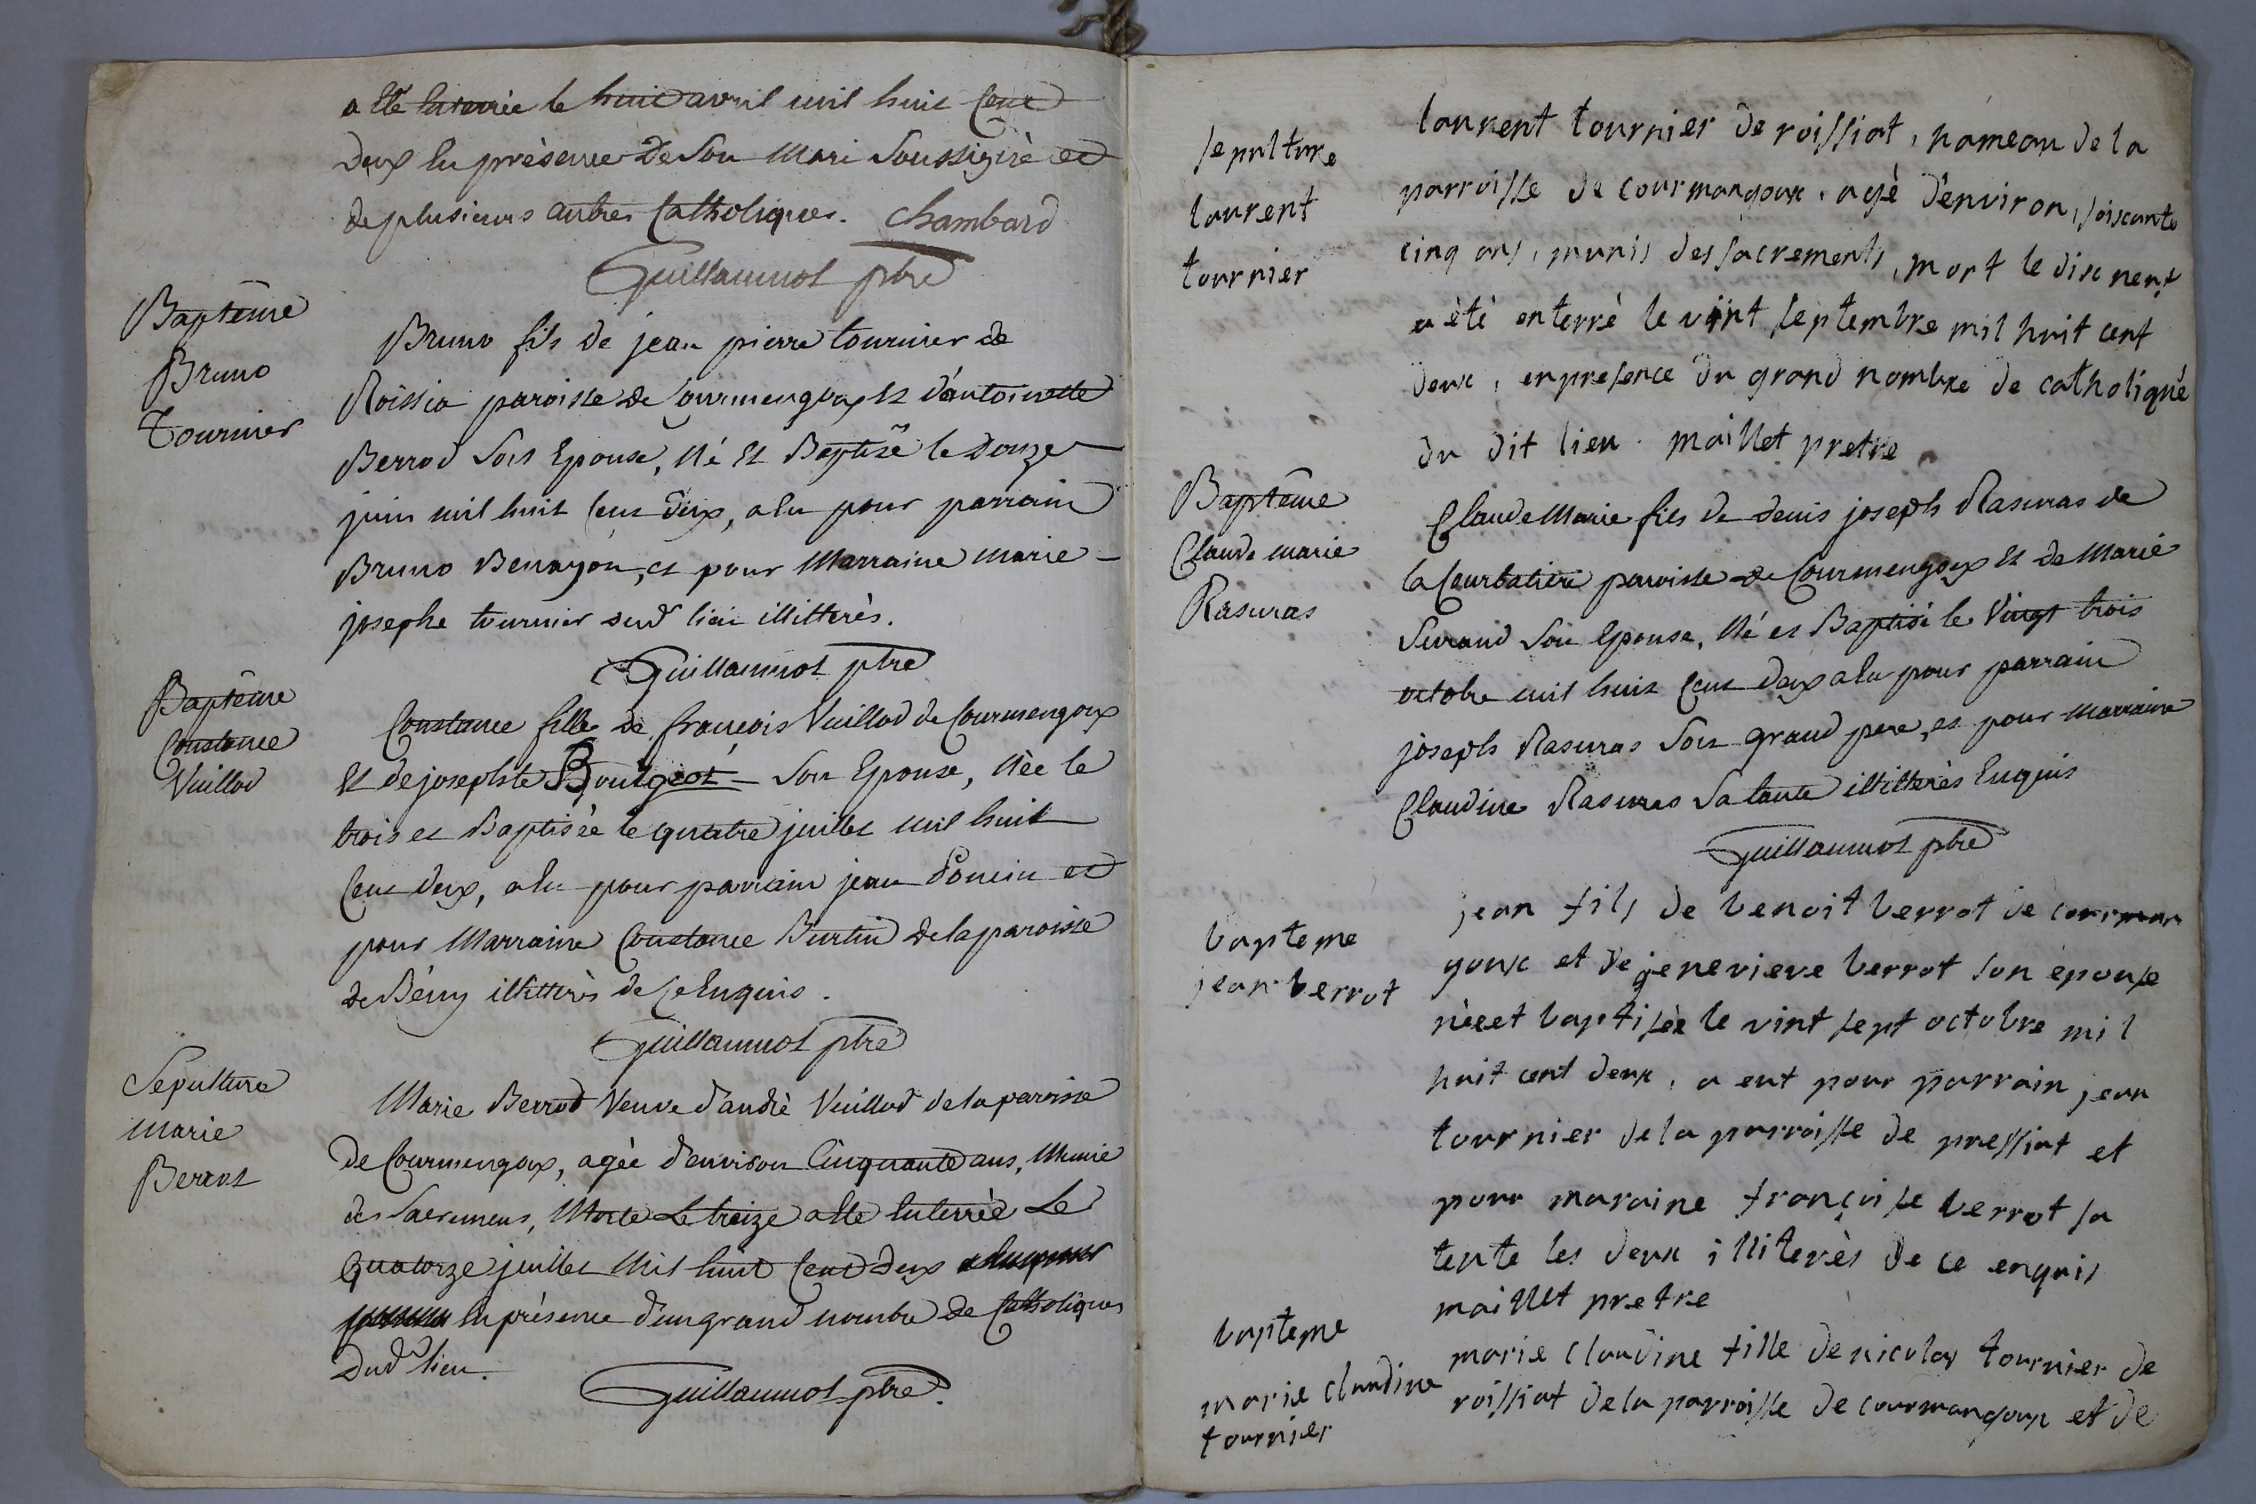 a été enterrée le huit avril mil huit Cent
deux En présence de Son Mari Soussigné et
de plusieurs autres Catholiques. Chambard
Guillaumot ptre
Baptême
Bruno
Tournier
Bruno fils de jean pierre tournier de
Roissia paroisse de Courmengoux Et d'antoinette
Berrod Son Epouse, Né Et Baptisé le douze
juin mil huit Cent deux, a Eu pour parrain
Bruno Benayon, et pour Marraine Marie
josephe tournier dud lieu illitterès.
Guillaumot ptre
Baptême
Constance
Vuillod
Constance fille de françois Vuillod de Courmengoux
Et de josephte Bourgeot Son Epouse, Née le
trois et Baptisée le quatre juillet mil huit
Cent deux, a Eu pour parrain jean Poncin et
pour Marraine Constance Burtin de la paroisse
de Bény illitterès de Ce Enquis.
Guillaumot ptre
Sepulture
Marie
Berrot
Marie Berrod Veuve d'andrè Vuillod de la paroisse
de Courmengoux, agée d'environ Cinquante ans, Munie
des Sacremens, Morte Le treize a été Enterrée Le
Quatorze juillet Mil huit Cent deux
En présence d'un grand nombre de Catholiques
Dud lieu.
Guillaumot ptre.
sepulture
laurent
tournier
laurent tournier de roissiat, hameau de la
parroisse de courmangoux, agè d'environ, soiscante
cinq ans, munis des sacrements, mort le disc neuf
a ètè enterrè le vint septembre mil huit cent
deux, en presence du grand nombre de catholique
du dit lieu. maillet pretre
Baptême
Claude marie
Rasuras
Claude Marie fils de denis joseph Rasuras de
la Courbatiere paroisse de Courmengoux Et de Marie
Surand Son Epouse, Né et Baptisé le Vingt trois
octobre mil huit Cent deux a Eu pour parrain
joseph Rasuras Son grand pere, et pour Marraine
Claudine Rasuras Sa tante illitterès Enquis
Guillaumot ptre
bapteme
jean berrot
jean fils de benoit berrot de courman
goux et de genevieve berrot son èpouse
nèe et baptisèe le vint sept octobre mil
huit cent deux, a eut pour parrain jean
tournier de la parroisse de pressiat et
pour maraine françoise berrot sa
tente les deux illiterès de ce enquis
maillet pretre
bapteme
marie claudine
tournier
marie claudine fille de nicolas tournier de
roissiat de la parroisse de courmangoux et de